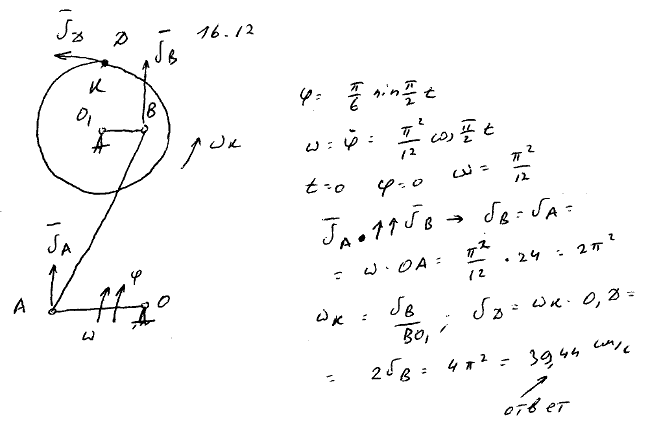 16.12
V̄_D D V̄_B
K
O₁ B
ω_K
V̄_A
φ
A O
ω
φ = π/6 sin π/2 t
ω = φ̇ = π²/12 cos π/2 t
t=0 φ=0 ω = π²/12
V̄_A ↑↑ V̄_B → V_B = V_A =
= ω · OA = π²/12 · 24 = 2π²
ω_K = V_B/BO₁ ; V_D = ω_K · O₁D =
= 2V_B = 4π² = 39,44 см/с
ответ